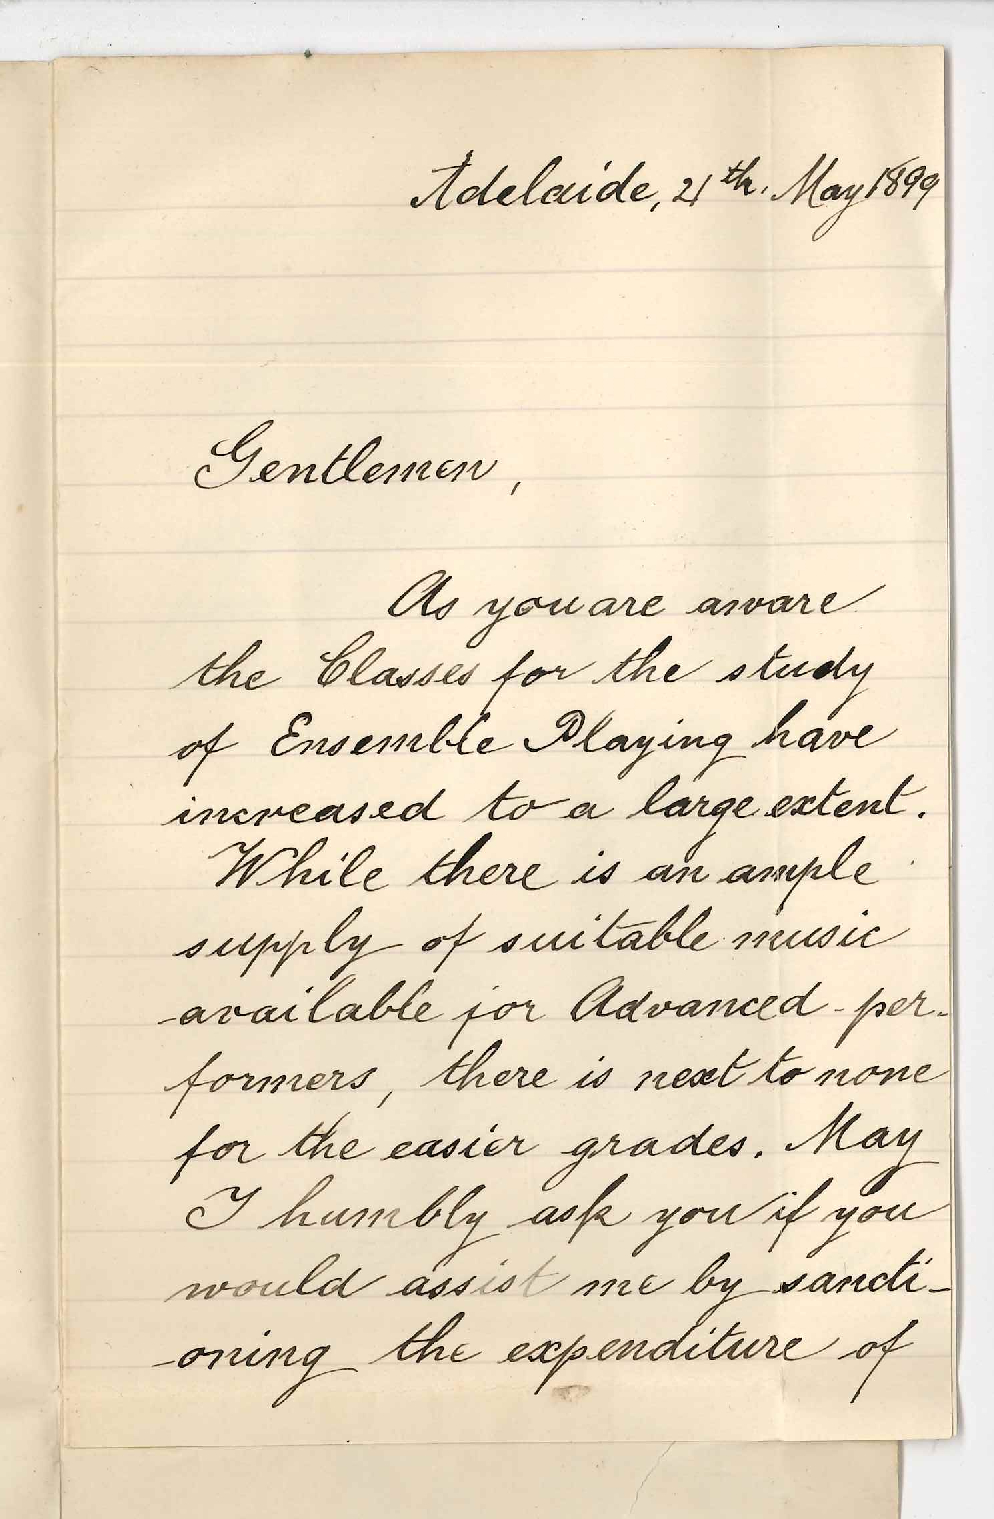 Adelaide, 21th. May 1899
Gentlemen,
As you are aware
the Classes for the study
of Ensemble Playing have
increased to a large extent.
While there is an ample
supply of suitable music
available for Advanced per-
formers, there is next to none
for the easier grades. May
I humbly ask you if you
would assist me by sancti-
oning the expenditure of